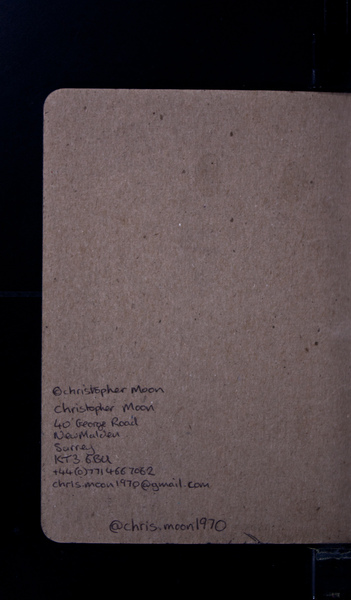 ©christopher Moon
Christopher Moon
40 George Road
New Malden
Surrey
KT3 6BU
+44(0)7714667062
chris.moon1970@gmail.com
@chris.moon1970